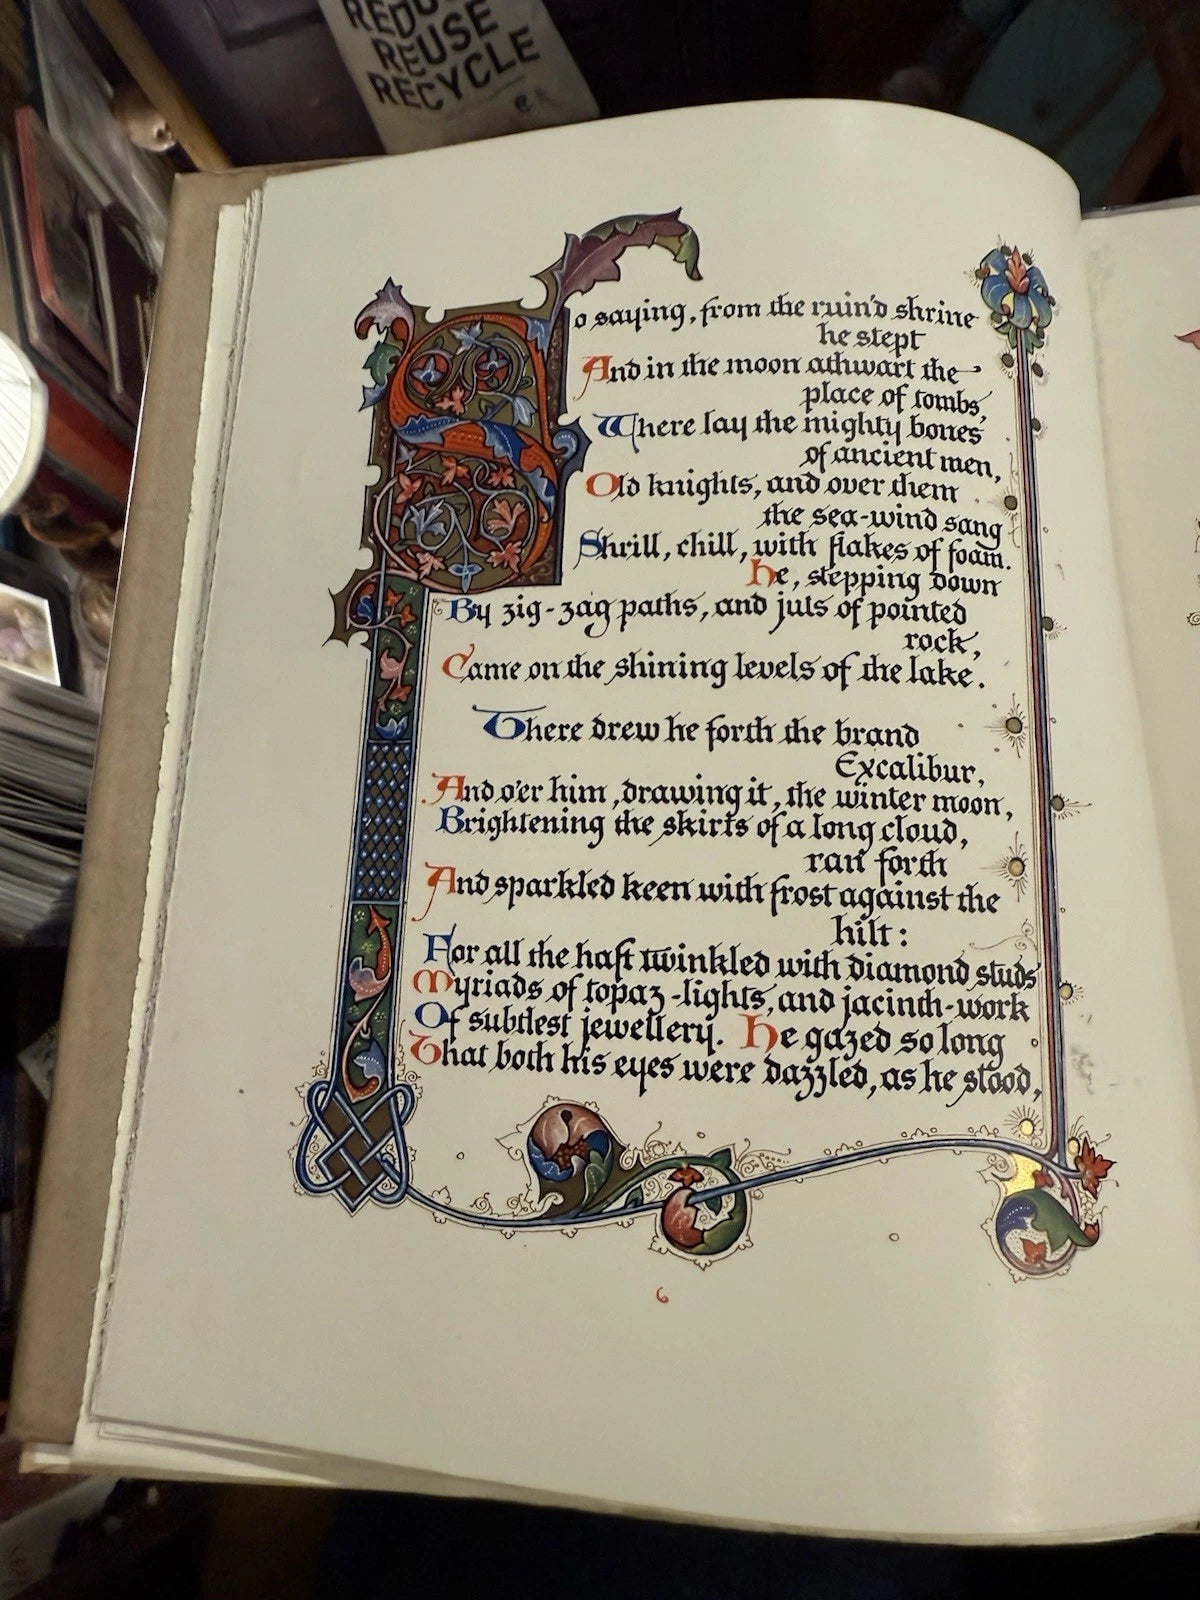 REDUCE
REUSE
RECYCLE
So saying, from the ruin'd shrine
he stept
And in the moon athwart the
place of tombs,
Where lay the mighty bones
of ancient men,
Old knights, and over them
the sea-wind sang
Shrill, chill, with flakes of foam.
He, stepping down
By zig-zag paths, and juts of pointed
rock,
Came on the shining levels of the lake.
There drew he forth the brand
Excalibur,
And o'er him, drawing it, the winter moon,
Brightening the skirts of a long cloud,
ran forth
And sparkled keen with frost against the
hilt:
For all the haft twinkled with diamond studs
Myriads of topaz-lights, and jacinth-work
Of subtlest jewellery. He gazed so long
That both his eyes were dazzled, as he stood,
6